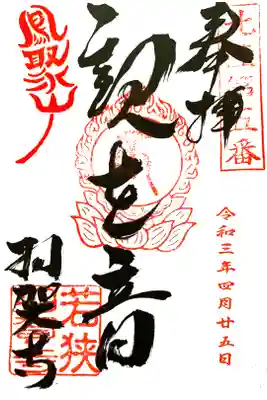 奉拝
令和三年四月廿五日
観世音
鳳聚山
若狭
羽賀寺